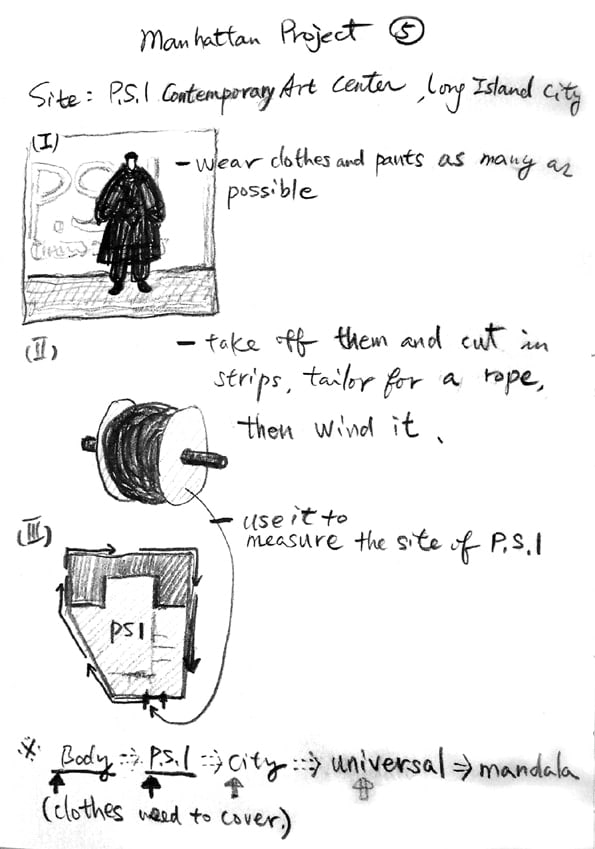 Manhattan Project ⑤
Site: P.S.1 Contemporary Art Center, Long Island City
(I)
P.S.1
- wear clothes and pants as many as
possible
(II)
- take off them and cut in
strips, tailor for a rope,
then wind it.
(III)
- use it to
measure the site of P.S.1
PS1
※ Body ⇒ P.S.1 ⇒ City ⇒ universal ⇒ mandala
(clothes need to cover.)